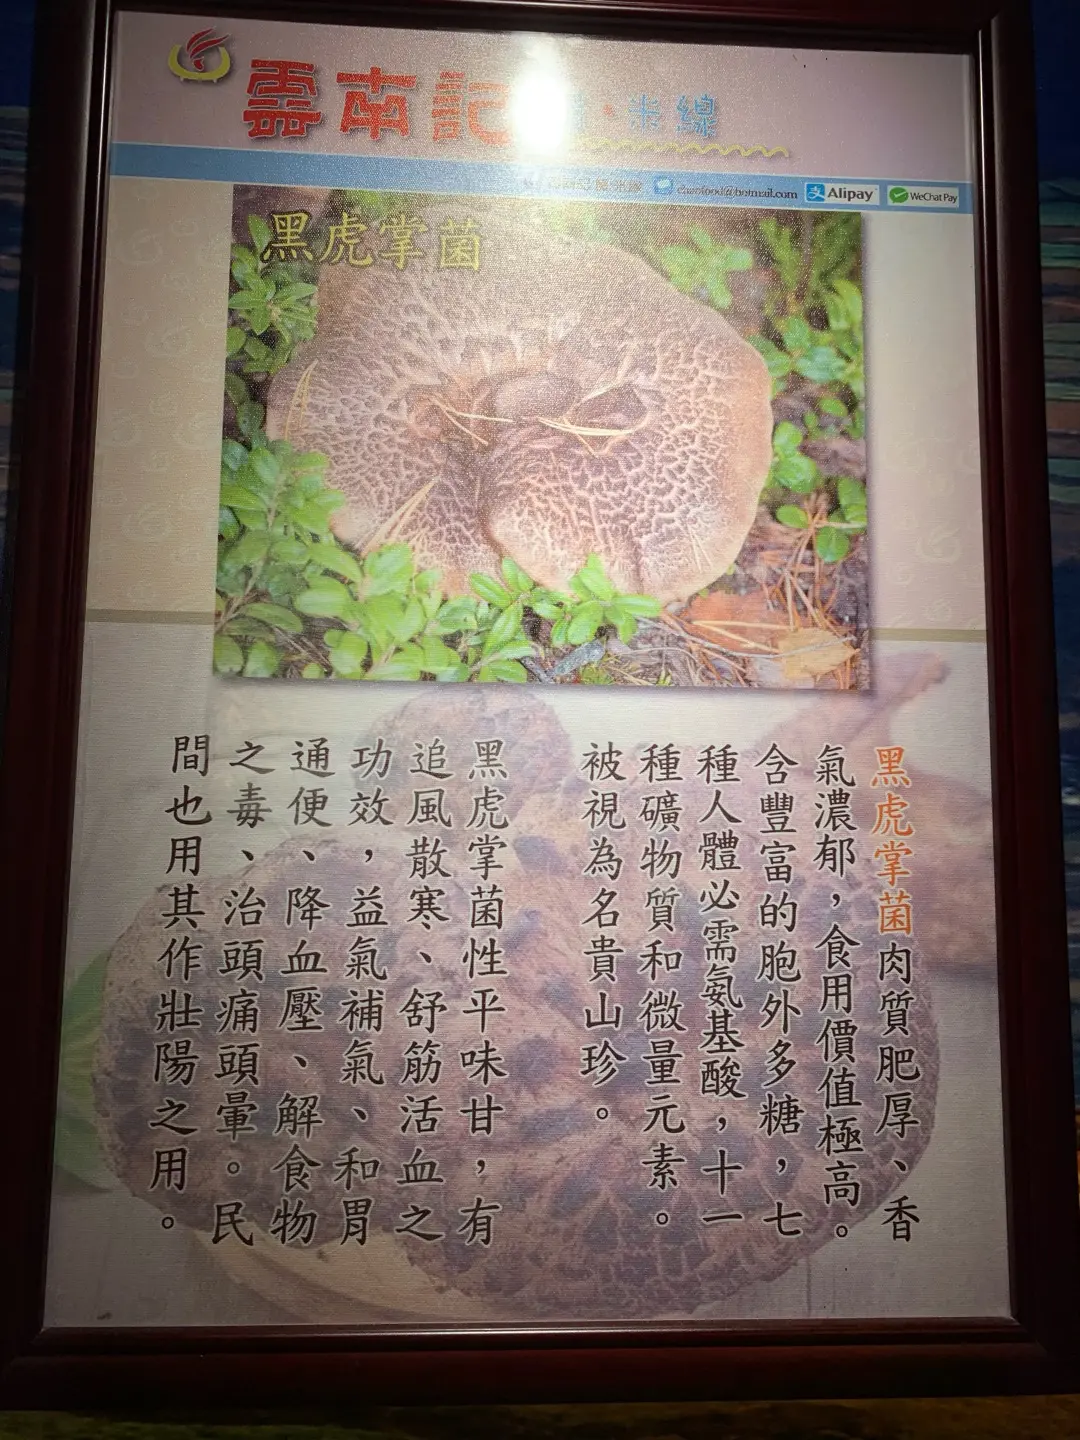 雲南記
米線
chenfood@hotmail.com
Alipay
WeChat Pay
黑虎掌菌
黑虎掌菌肉質肥厚、香
氣濃郁，食用價值極高。
含豐富的胞外多糖，七
種人體必需氨基酸，十一
種礦物質和微量元素。
被視為名貴山珍。
黑虎掌菌性平味甘，有
追風散寒、舒筋活血之
功效，益氣補氣、和胃
通便、降血壓、解食物
之毒、治頭痛頭暈。民
間也用其作壯陽之用。